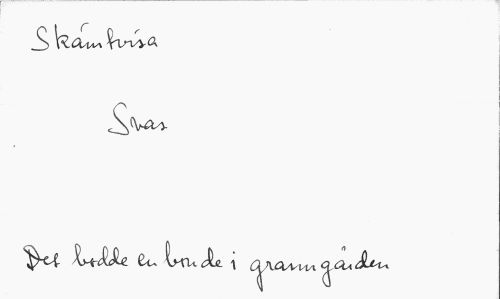 Skämtvisa
Svar
Det bodde en bonde i granngården